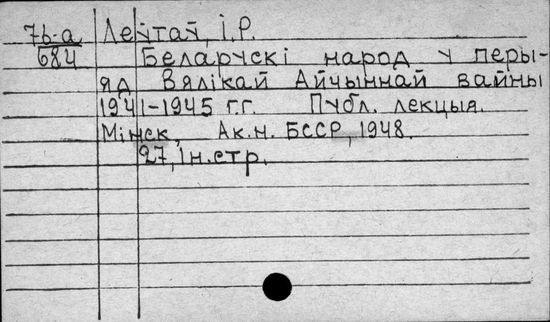 7b-a Леўтаў, І.Р.
684 Беларускі народ у перы-
яд Вялікай Айчыннай вайны
1941-1945 г.г. Публ. лекцыя.
Мінск, Ак.н. БССР, 1948.
27, Ін.стр.